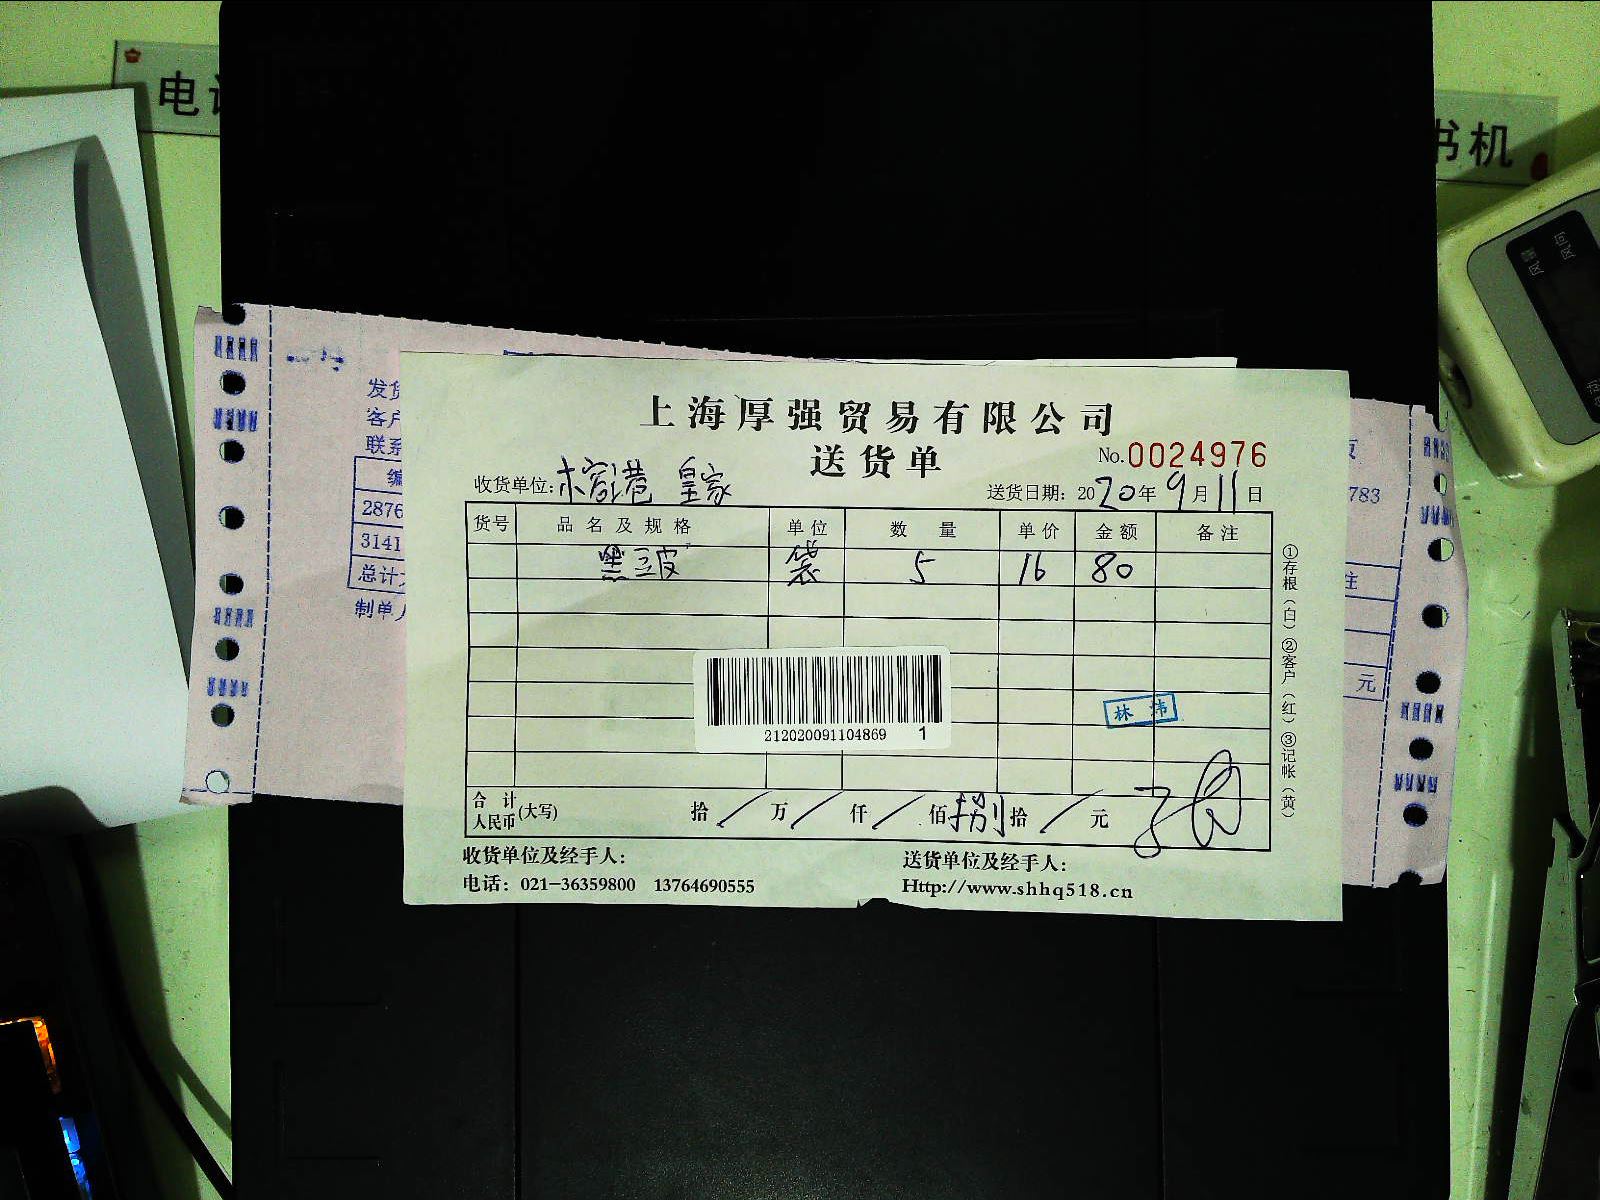 电话
书机
风量
风向
发货
客户
联系
编
2876
3141
总计
制单人
783
注
元
上海厚强贸易有限公司
送货单
No.0024976
收货单位: 皇家
送货日期: 2020年9月11日
货号 品名及规格 单位 数量 单价 金额 备注
黑 袋 5 16 80
①存根（白）②客户（红）③记帐（黄）
212020091104869 1
林
合计人民币(大写) 拾 / 万 / 仟 / 佰 捌 拾 / 元
收货单位及经手人: 送货单位及经手人:
电话: 021-36359800 13764690555 Http://www.shhq518.cn